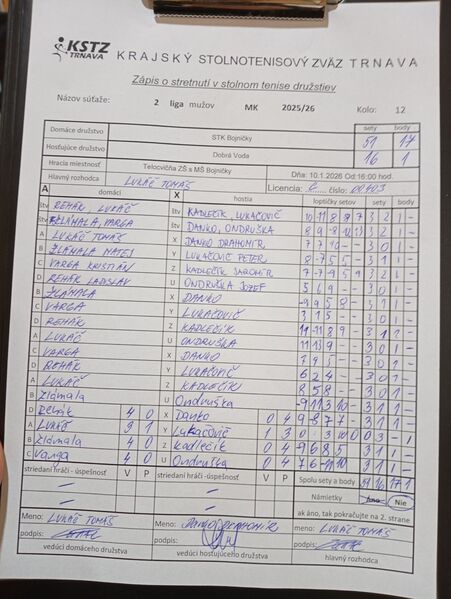 KSTZ TRNAVA KRAJSKÝ STOLNOTENISOVÝ ZVÄZ TRNAVA
Zápis o stretnutí v stolnom tenise družstiev
Názov súťaže: 2 liga mužov MK 2025/26 Kolo: 12
sety body
Domáce družstvo STK Bojničky 51 17
Hosťujúce družstvo Dobrá Voda 16 1
Hracia miestnosť Telocvičňa ZŠ s MŠ Bojničky Dňa: 10.1.2026 Od 16:00 hod.
Hlavný rozhodca LUKÁČ TOMÁŠ Licencia: C číslo: 00403
A domáci X hostia loptičky setov sety body
štv REHÁK, LUKÁČ štv KADLEČÍK, LUKAČOVIČ 3 2 1 -
štv ŽLNÁMALA, VARGA štv DANKO, ONDRUŠKA 3 2 1 -
A LUKÁČ TOMÁŠ X DANKO DRAHOMÍR 7 7 10 - - 3 0 1 -
B Y LUKAČOVIČ PETER 8 -7 5 5 - 3 1 1 -
C VARGA KRISTIÁN Z KADLEČÍK JAROMÍR 3 2 1 -
D REHÁK LADISLAV U ONDRUŠKA JOZEF 3 0 1 -
B X DANKO -9 9 5 8 - 3 1 1 -
C VARGA Y LUKAČOVIČ 3 1 5 - - 3 0 1 -
D REHÁK Z KADLEČÍK 3 1 1 -
A LUKÁČ U ONDRUŠKA 11 13 9 - - 3 0 1 -
C VARGA X DANKO 7 9 5 - - 3 0 1 -
D REHÁK Y LUKAČOVIČ 6 2 4 - - 3 0 1 -
A LUKÁČ Z KADLEČÍK 8 5 8 - - 3 0 1 -
B U Ondruška -9 11 3 10 - 3 1 1 -
D Rehák 4 0 X Danko 0 4 -9 8 7 7 - 3 1 1 -
A Lukáč 3 1 Y Lukačovič 1 3 0 3 - 1
B 4 0 Z Kadlečík 0 4 -9 6 8 5 - 3 1 1 -
C Varga 4 0 U Ondruška 0 4 3 1 1 -
striedaní hráči - úspešnosť V P striedaní hráči - úspešnosť V P Spolu sety a body 51 16 17 1
Námietky Áno Nie
ak áno, tak pokračujte na 2. strane
Meno: LUKÁČ TOMÁŠ Meno: DANKO DRAHOMÍR meno: LUKÁČ TOMÁŠ
podpis: podpis: podpis:
vedúci domáceho družstva vedúci hosťujúceho družstva hlavný rozhodca